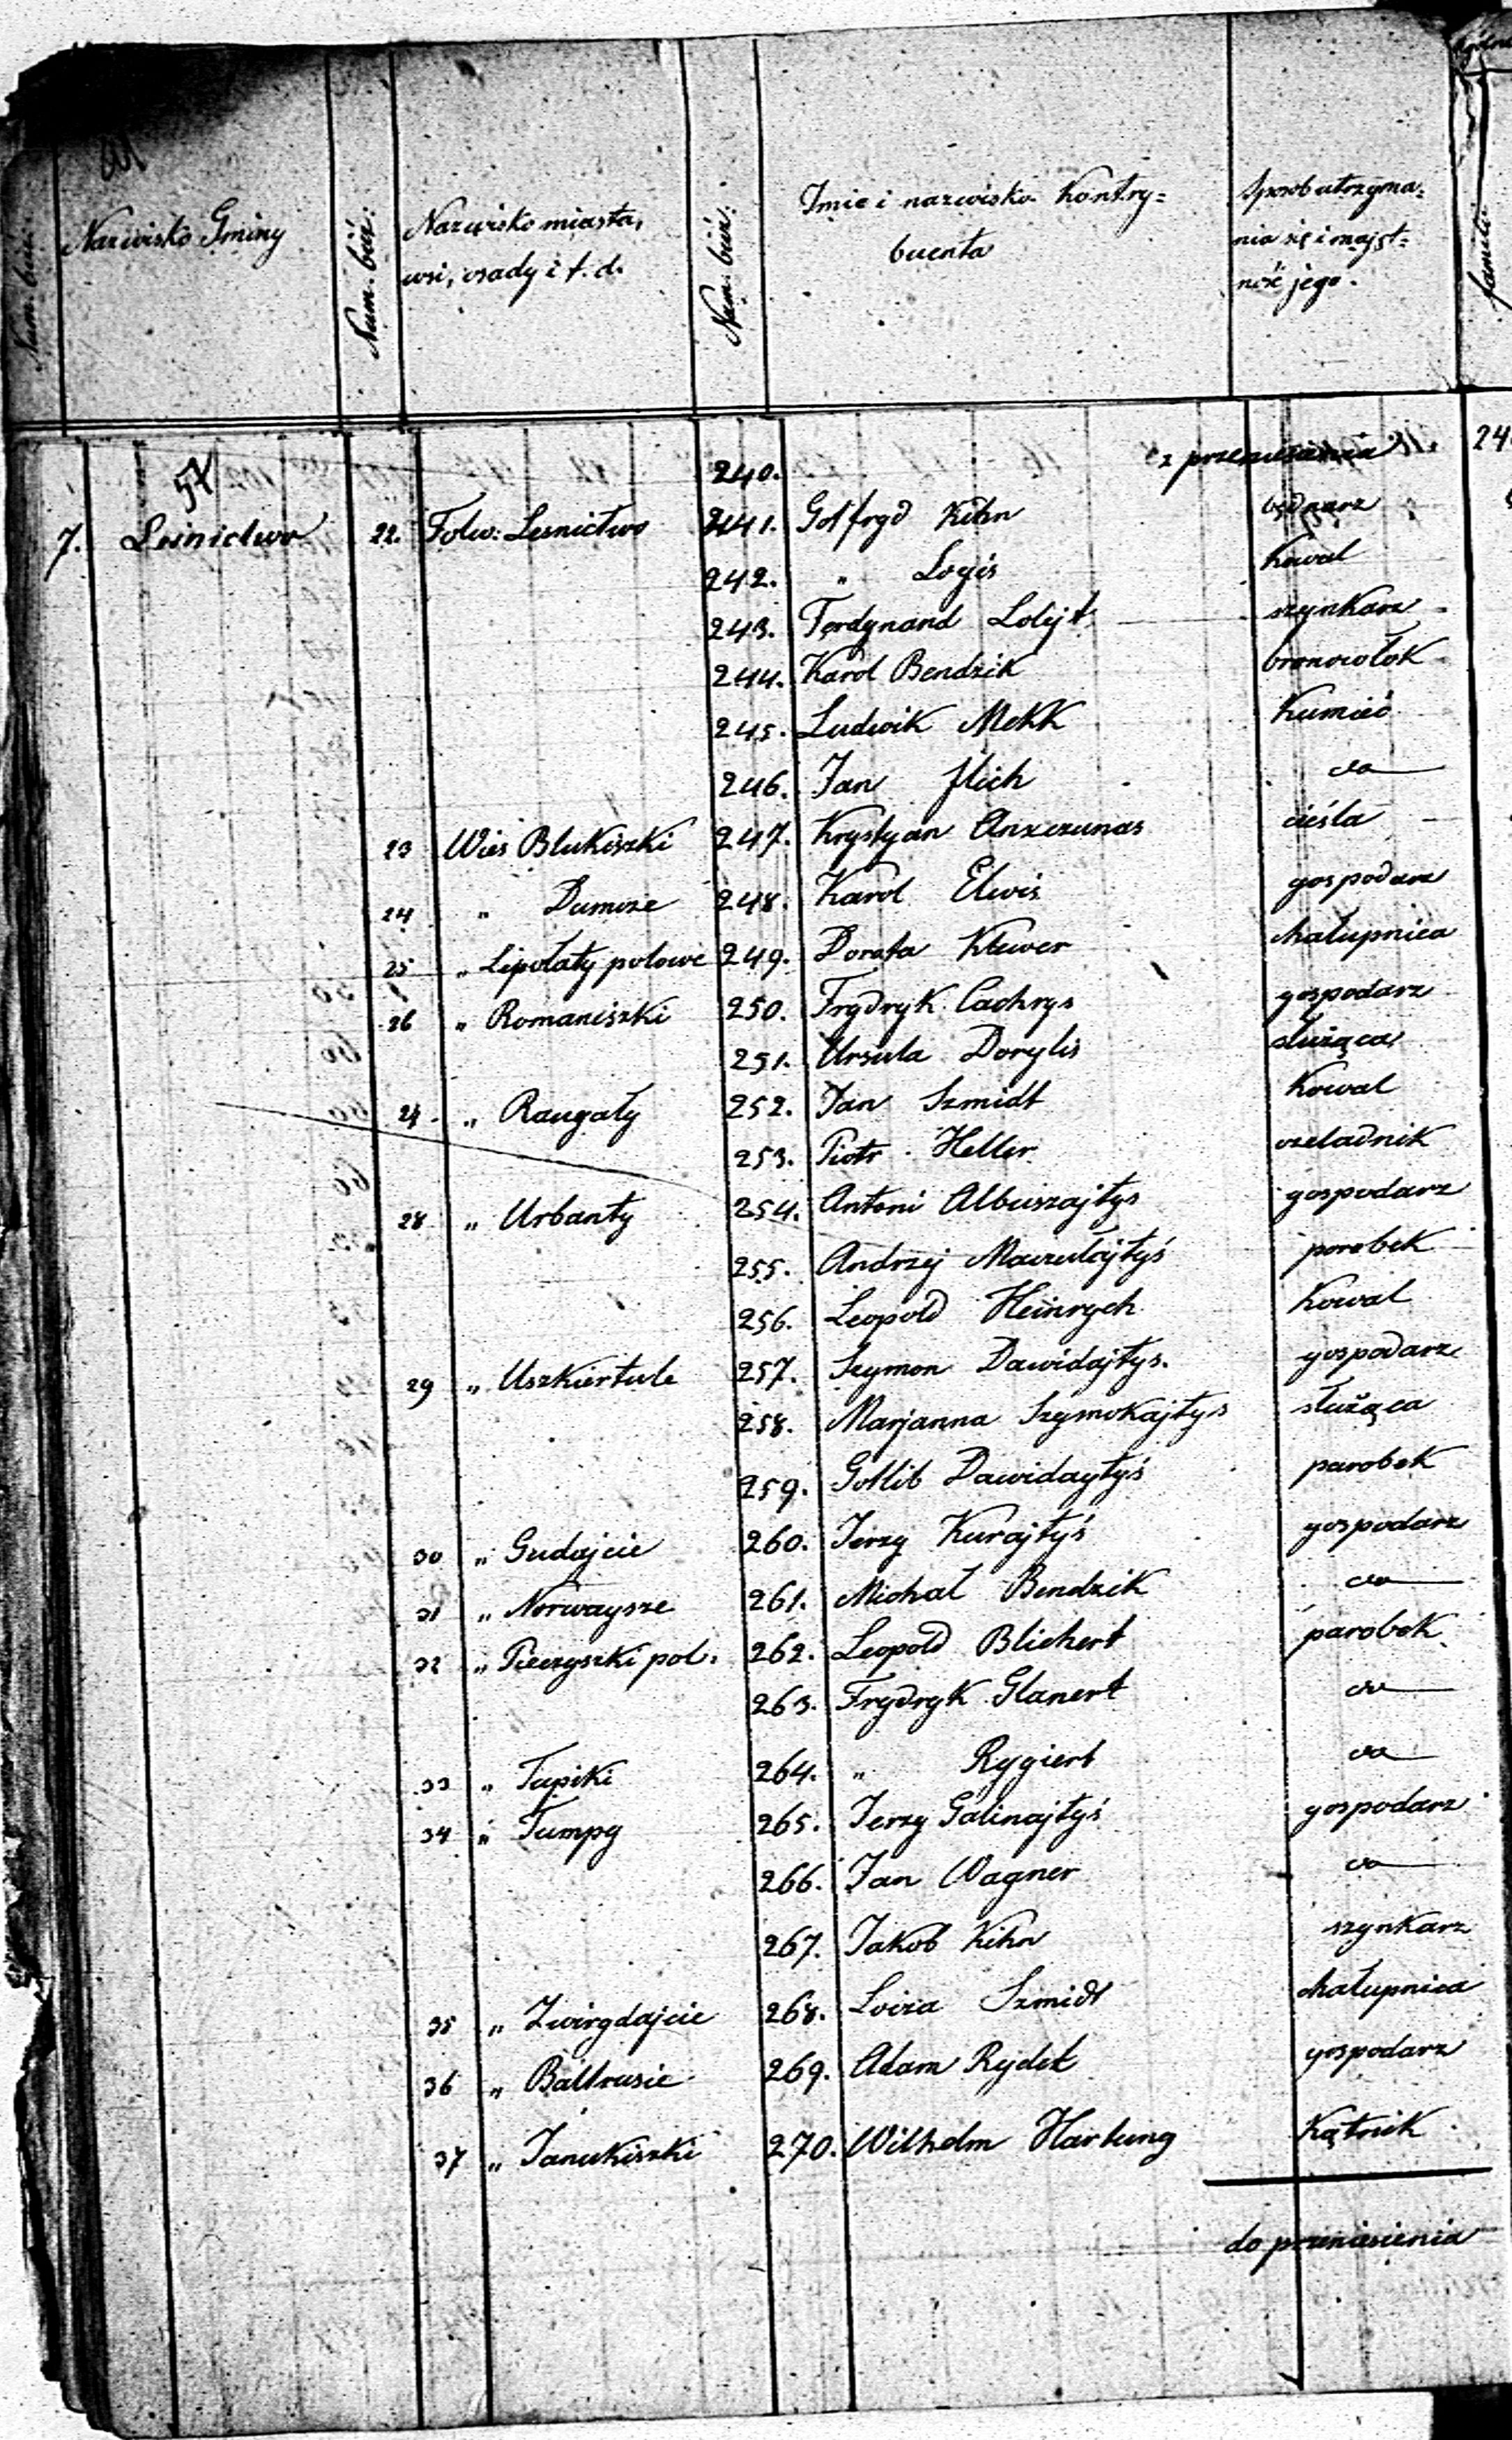 Num. bież.
Nazwisko Gminy
Num. bież.
Nazwisko miasta,
wsi, osady i t. d.
Num. bież.
Imie i nazwisko Kontry=
buenta
Sposob utrzyma=
nia się i mająt=
ność jego.
familii
57
240. z przeniesienia 24
7. Leśnictwo 22. Folw: Lesnictwo 241. Gotfryd Kihn bednarz
242. " Logis Kowal
243. Ferdynand Lolejt szynkarz
244. Karol Bendzik bronowłok
245. Ludwik Mekk Kumieć
246. Jan Ilich do
23 Wies Blukiszki 247. Krystyan Anszczunas cieśla
24 " Dumsze 248. Karol Elwis gospodarz
25 " Lepołaty polowe 249. Dorota Kluwer chałupnica
26 " Romaniszki 250. Frydryk Cachrys gospodarz
251. Ursula Dorylis służąca
27. " Raugały 252. Jan Szmidt Kowal
253. Piotr Heller czeladnik
28 " Urbanty 254. Antoni Albuszajtys gospodarz
255. Andrzej Maczulajtyś parobek
256. Leopold Heinrych Kowal
29 " Uszkiertule 257. Szymon Dawidajtys. gospodarz
258. Marjanna Szymokajtys służąca
259. Gotlib Dawidaytyś parobek
30 " Gudajcie 260. Jerzy Kurajtyś gospodarz
31 " Norwaysze 261. Michał Bendzik do
32 " Pieczyszki pol: 262. Leopold Blichert parobek
263. Frydryk Glanert do
33 " Tupiki 264. " Rygiert do
34 " Tumpy 265. Jerzy Galinajtyś gospodarz
266. Jan Wagner do
267. Jakob Kihn szynkarz
35 " Zwirgdajcie 268. Loiza Szmidt chałupnica
36 " Baltrusie 269. Adam Rydel gospodarz
37 " Janukiszki 270. Wilhelm Hartung Kątnik
do przeniesienia